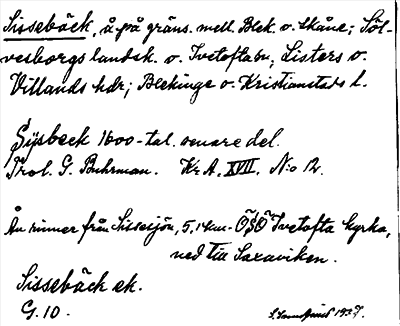 Sissebäck, å på gräns. mell. Blek. o. Skåne; Söl-
vesborgs landsk. o. Ivetofta sn, Listers o.
Villands hdr; Blekinge o. Kristianstads l.
Sijsbeck 1600-tal. senare del.
Prol. G. Buhrman. Kr A. XVII. N:o 12.
Ån rinner från Sissesjön, 5,1 km. ÖSÖ Ivetofta kyrka,
ned till Saxaviken.
Sissebäck ek.
G. 10.
1937.